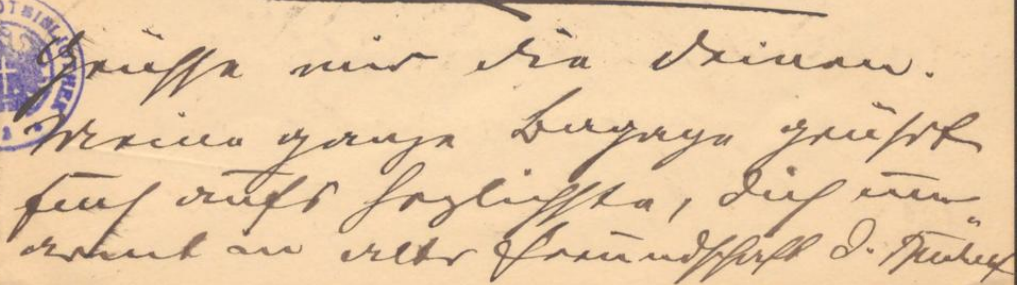 DTBIBLIOTHEK
Grüsse mir die Deinen.
Meine ganze Bagage grüsst
Euch aufs herzlichste, Dich um
armt in alter Freundschaft D.